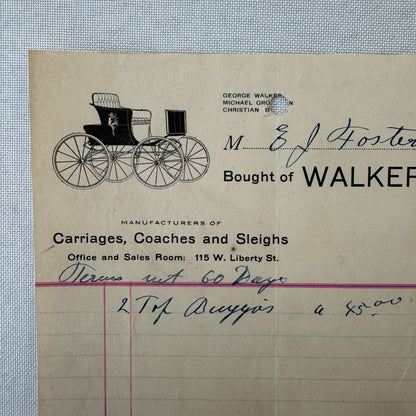 GEORGE WALKER
MICHAEL
CHRISTIAN
M E J Foster
Bought of WALKER
MANUFACTURERS OF
Carriages, Coaches and Sleighs
Office and Sales Room: 115 W. Liberty St.
Terms net 60 Days
2 Top Buggies a 45.00